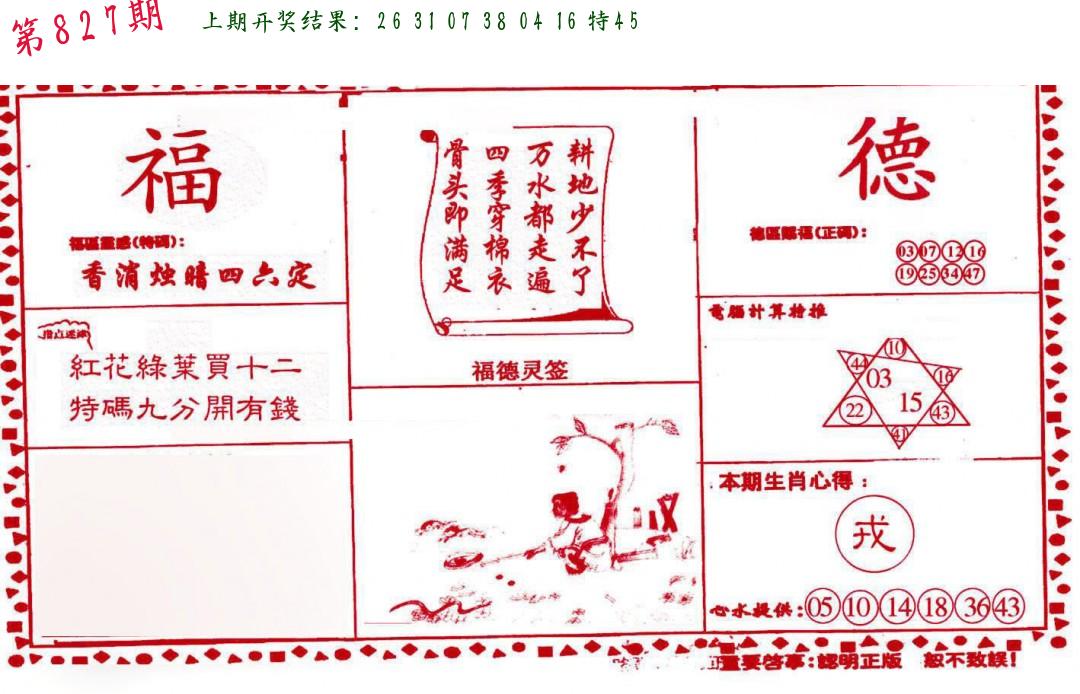 第827期
上期开奖结果: 26 31 07 38 04 16 特45
福
福區靈感(特碼):
香消烛暗四六定
指点迷津
紅花綠葉買十二
特碼九分開有錢
耕地少不了
万水都走遍
四季穿棉衣
骨头即满足
福德灵签
德
德區賜福(正碼):
03 07 12 16
19 25 34 47
電腦計算特推
10
44 03 16
22 15 43
41
本期生肖心得:
戎
心水提供:05 10 14 18 36 43
重要啓事:認明正版 恕不致誤!